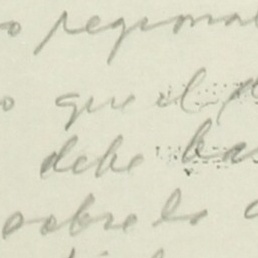 o regional
o que el
debe bas
sobre lo